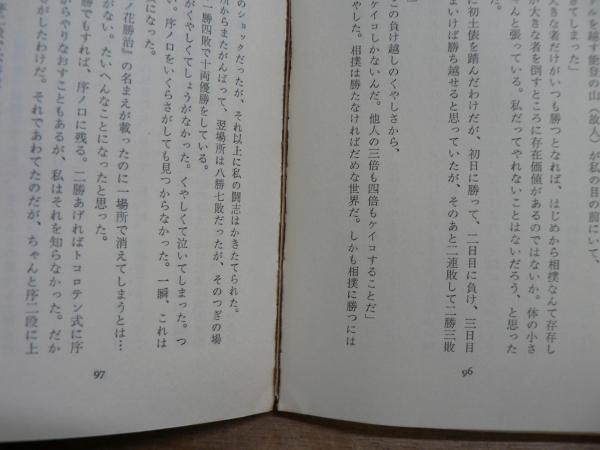 を越す能登の山（故人）が私の目の前にいて、
きてしまった」
大きな者だけがいつも勝つとなれば、はじめから相撲なんて存在し
が大きな者を倒すところに存在価値があるのではないか。体の小さ
ゃんと張っている。私だってやれないことはないだろう、と思った
た。
に初土俵を踏んだわけだが、初日に勝って、二日目に負け、三日目
まいけば勝ち越せると思っていたが、そのあと二連敗して二勝三敗
この負け越しのくやしさから、
ケイコしかないんだ。他人の三倍も四倍もケイコすることだ」
やした。相撲は勝たなければだめな世界だ。しかも相撲に勝つには
96
のショックだったが、それ以上に私の闘志はかきたてられた。
場所からまたがんばって、翌場所は八勝七敗だったが、そのつぎの場
一勝四敗で十両優勝をしている。
くやしくてしょうがなかった。くやしくて泣いてしまった。つ
い。序ノ口をいくらさがしても見つからなかった。一瞬、これは
になった。
ノ花勝治』の名まえが載ったのに一場所で消えてしまうとは…
がない。たいへんなことになったと思った。
勝でもすれば、序ノ口に残る。二勝あげればトコロテン式に序
がやりなおすこともあるが、私はそれを知らなかった。だか
がしたわけだ。それであわてたのだが、ちゃんと序二段に上
97